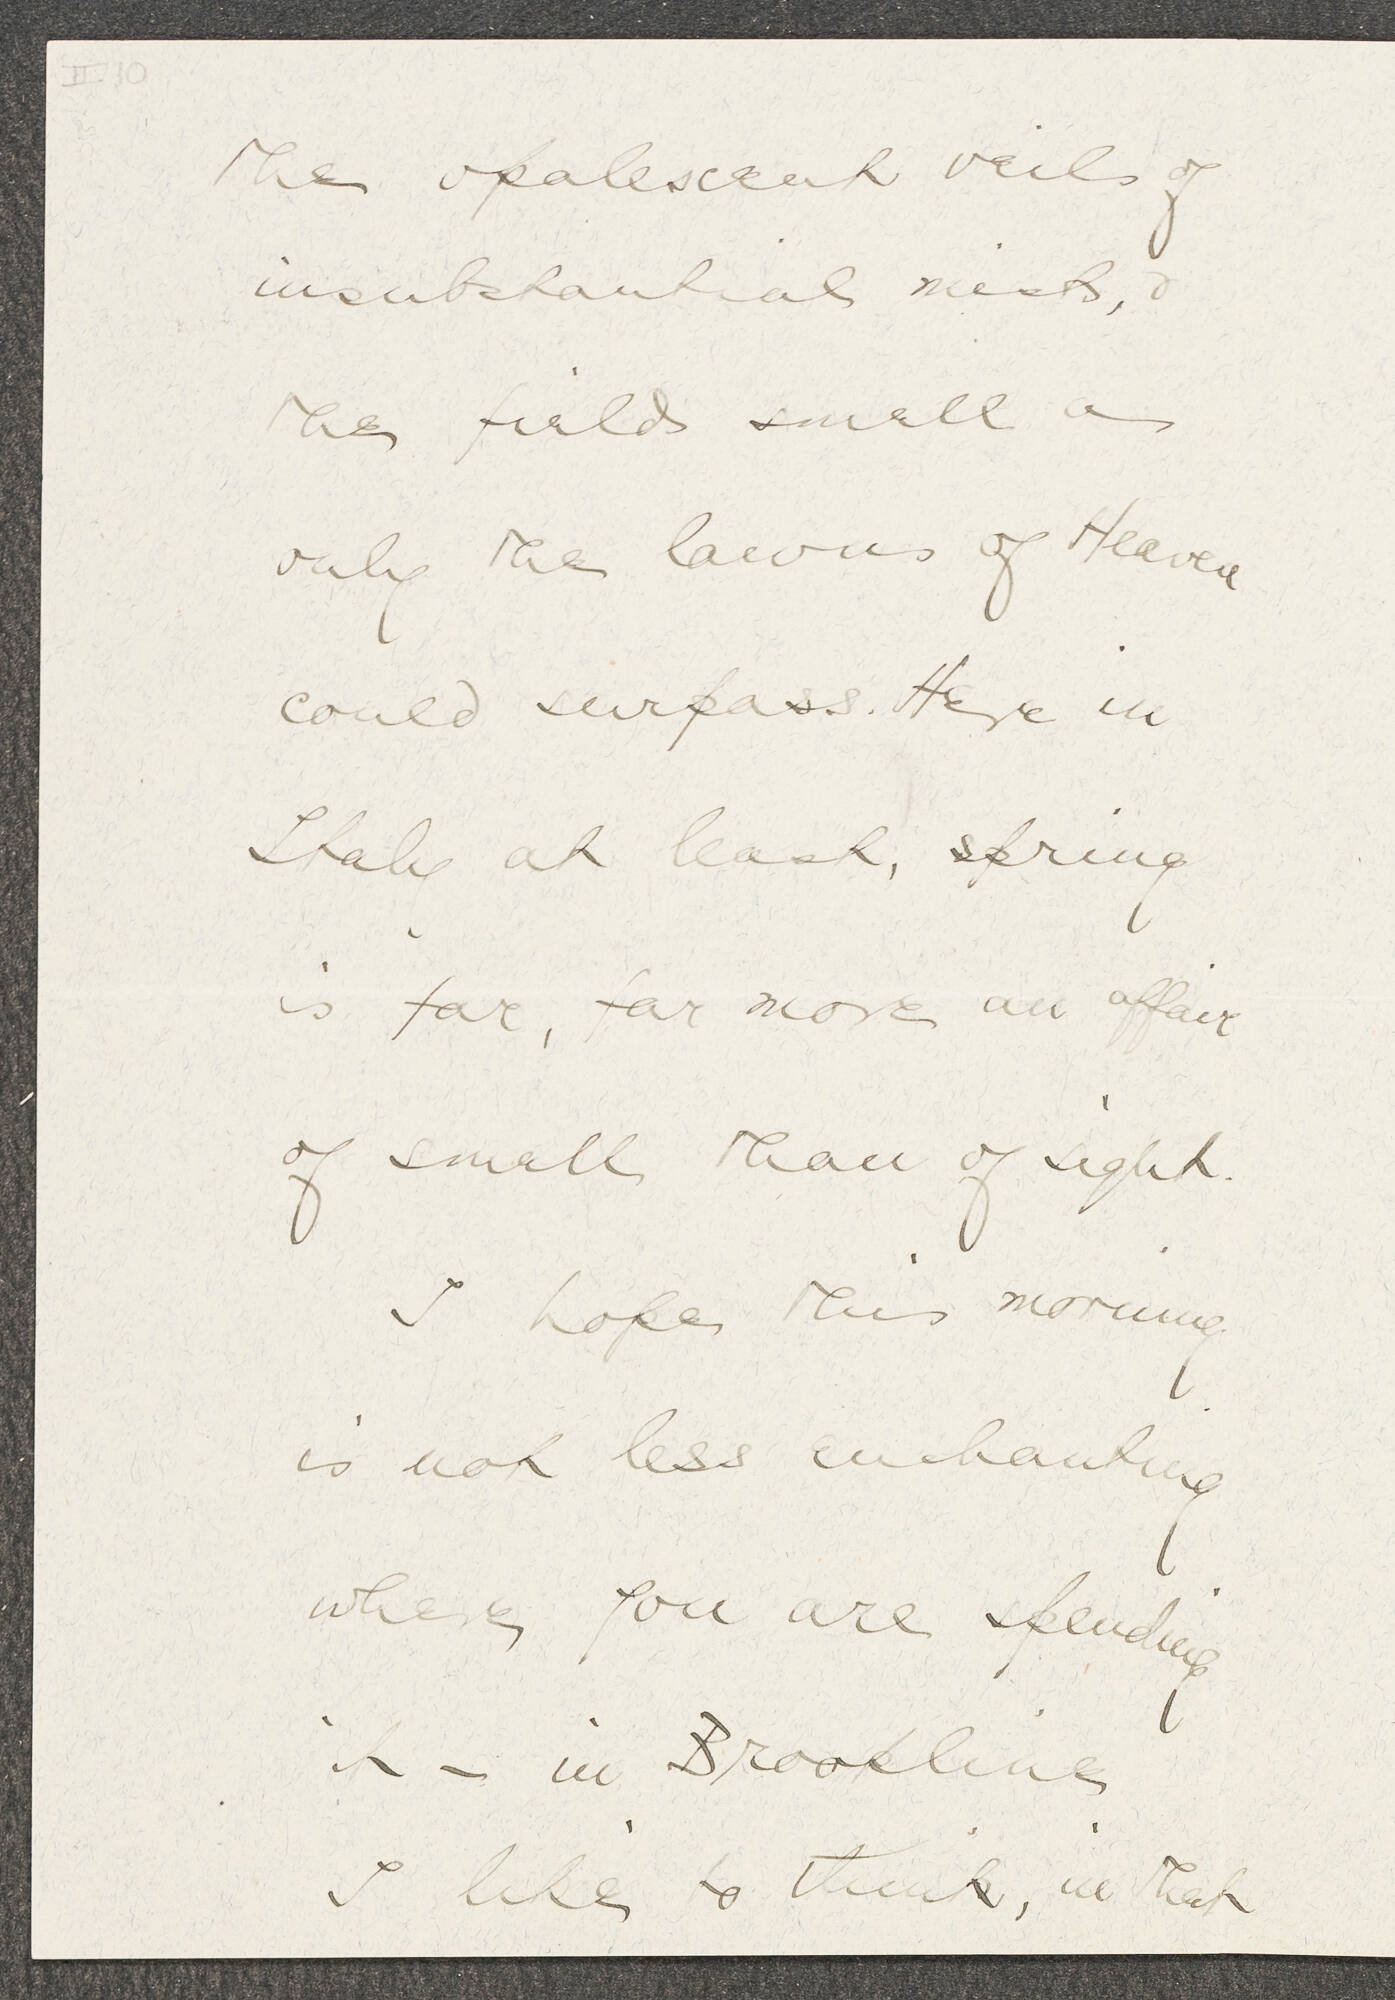 II 10
the opalescent veils of
insubstantial mists, &
the fields smell as
only the lawns of Heaven
could surpass. Here in
Italy at least, spring
is far, far more an affair
of smell than of sight.
I hope this morning
is not less enchanting
where you are spending
it – in Brookline
I like to think, in that